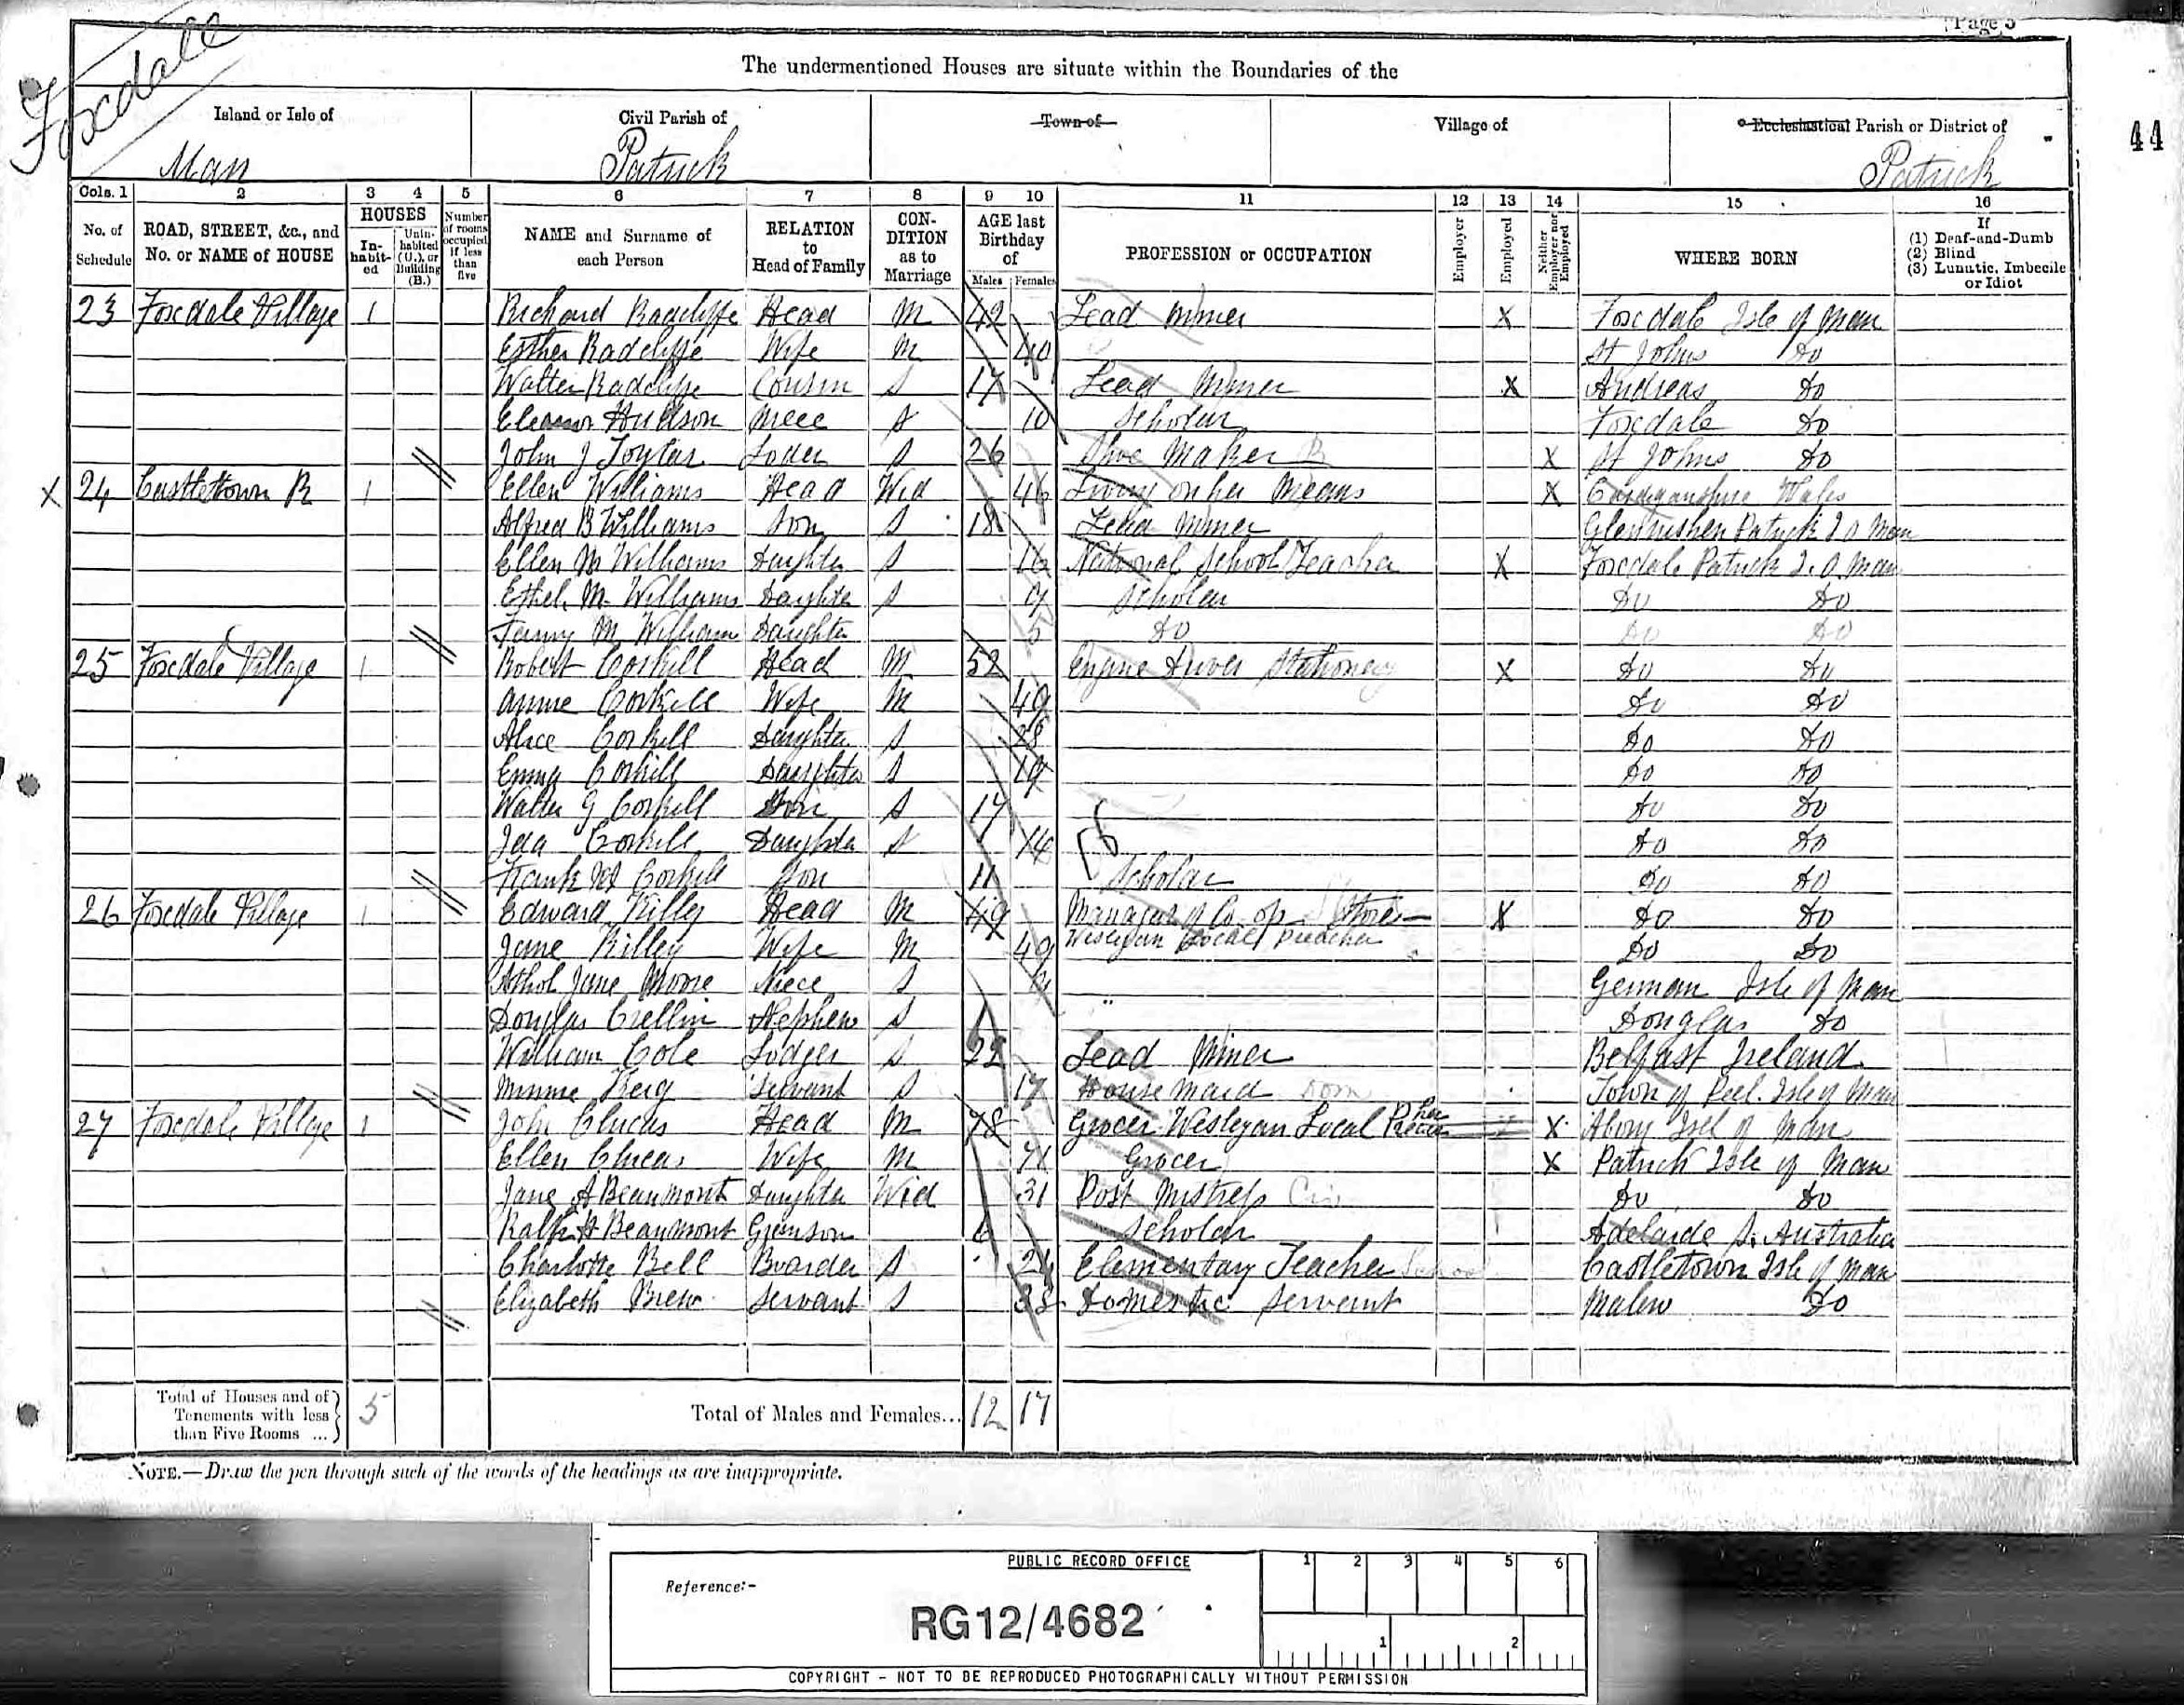 Page 5
Foxdale
The undermentioned Houses are situate within the Boundaries of the
Island or Isle of Man
Civil Parish of Patrick
Town of
Village of
Ecclesiastical Parish or District of Patrick
44
Cols. 1 2 3 4 5 6 7 8 9 10 11 12 13 14 15 16
No. of Schedule ROAD, STREET, &c., and No. or NAME of HOUSE HOUSES In-habit-ed Unin-habited (U.), or Building (B.) Number of rooms occupied if less than five NAME and Surname of each Person RELATION to Head of Family CON-DITION as to Marriage AGE last Birthday of Males Females PROFESSION or OCCUPATION Employer Employed Neither Employer nor Employed WHERE BORN If (1) Deaf-and-Dumb (2) Blind (3) Lunatic, Imbecile or Idiot
23 Foxdale Village 1 Richard Radcliffe Head M 42 Lead Miner X Foxdale Isle of Man
Esther Radcliffe Wife M 40 St Johns Do
Walter Radcliffe Cousin S 17 Lead Miner X Andreas Do
Eleanor Hudson Niece S 10 Scholar Foxdale Do
John J Loder S 26 Shoe Maker X St Johns Do
X 24 Castletown R 1 Ellen Williams Head Wid 46 Living on her Means X Cardiganshire Wales
Alfred B Williams Son S 18 Lead Miner Patrick I O Man
Ellen M Williams Daughter S 16 National School Teacher X Foxdale Patrick I.O.Man
Ethel M Williams Daughter S 9 Scholar Do Do
Fanny M William Daughter 5 Do Do Do
25 Foxdale Village 1 Robert Corkill Head M 52 Engine Driver Stationery X Do Do
Annie Corkill Wife M 49 Do Do
Alice Corkill Daughter S Do Do
Emma Corkill Daughter S 19 Do Do
Walter G Corkill Son S 17 Do Do
Ida Corkill Daughter S 14 Do Do
Frank W Corkill Son 11 Scholar Do Do
26 Foxdale Village 1 Edward Killey Head M 49 Manager of Co op Stores X Do Do
Jane Killey Wife M 49 Wesleyan Local Preacher Do Do
Athol Jane Moore Niece S German Isle of Man
Douglas Crellin Nephew S Douglas Do
William Cole Lodger S 22 Lead Miner Belfast Ireland
Minnie Keig Servant S 17 House Maid Dom Town of Peel. Isle of Man
27 Foxdale Village 1 John Clucas Head M 78 Grocer Wesleyan Local Preacher X Isle of Man
Ellen Clucas Wife M 71 Grocer X Patrick Isle of Man
Jane A Beaumont Daughter Wid 31 Post Mistress Do Do
Ralph H Beaumont Granson 6 Scholar Adelaide S. Australia
Charlotte Bell Boarder S 24 Elementary Teacher Castletown Isle of Man
Elizabeth Brew Servant S 38 Domestic Servant Malew Do
Total of Houses and of Tenements with less than Five Rooms ... 5 Total of Males and Females... 12 17
NOTE.—Draw the pen through such of the words of the headings as are inappropriate.
PUBLIC RECORD OFFICE
1 2 3 4 5 6
Reference:-
RG12/4682
1 2
COPYRIGHT - NOT TO BE REPRODUCED PHOTOGRAPHICALLY WITHOUT PERMISSION